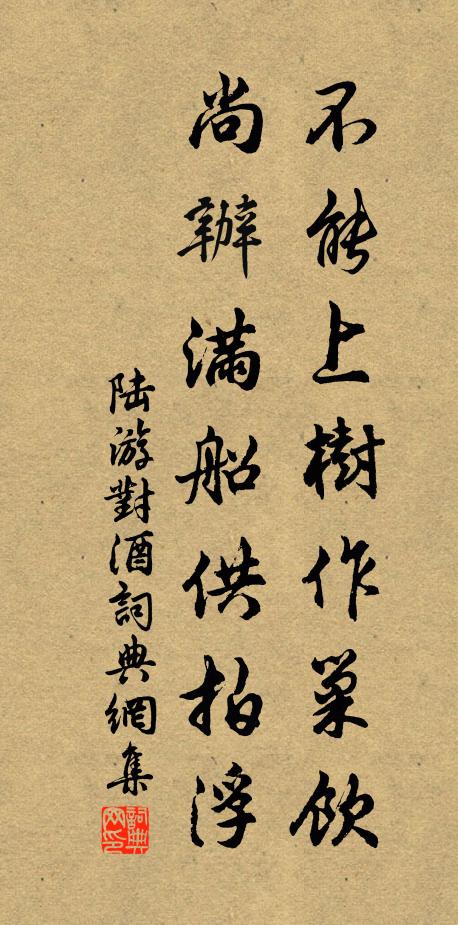 不能上樹作巢飲
尚辦滿船供拍浮
陆游對酒詞典網集
詞典网印